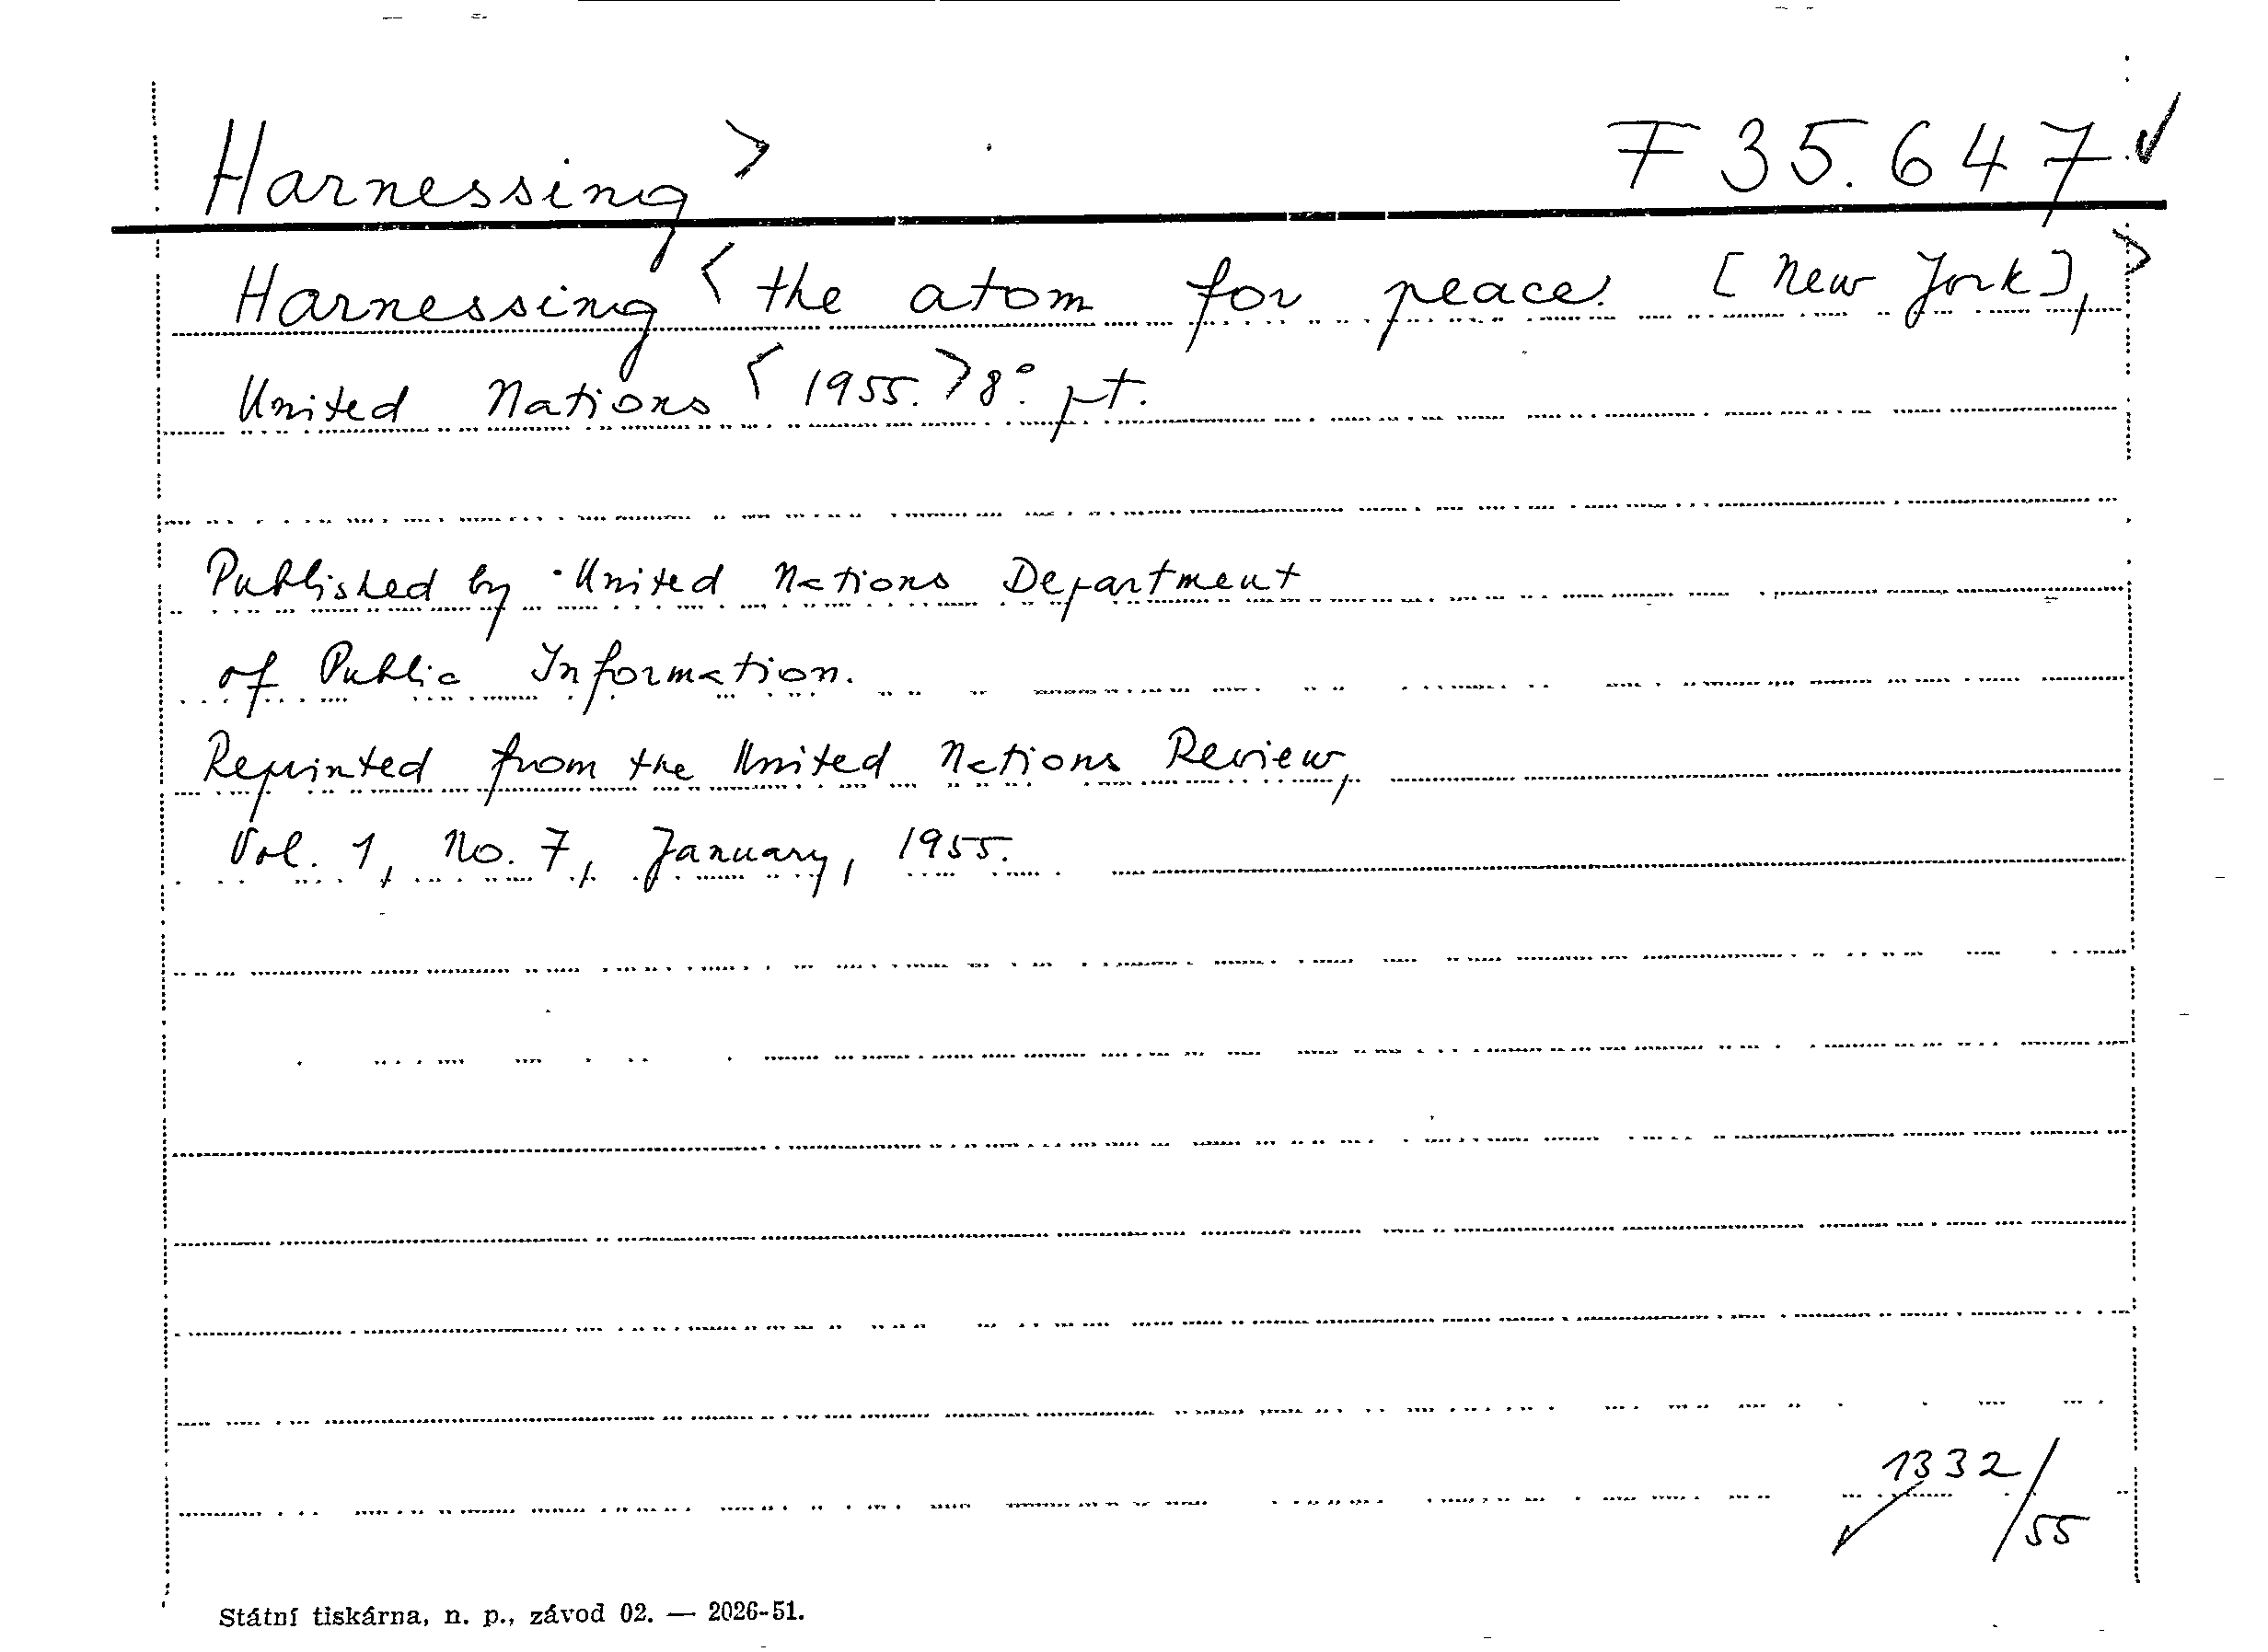 Harnessing > F 35.647 ✓
Harnessing < the atom for peace. [New York], >
United Nations < 1955. > 8°. pt.
Published by United Nations Department
of Public Information.
Reprinted from the United Nations Review,
Vol. 1, No. 7, January, 1955.
1332/55
Státní tiskárna, n. p., závod 02. — 2026-51.